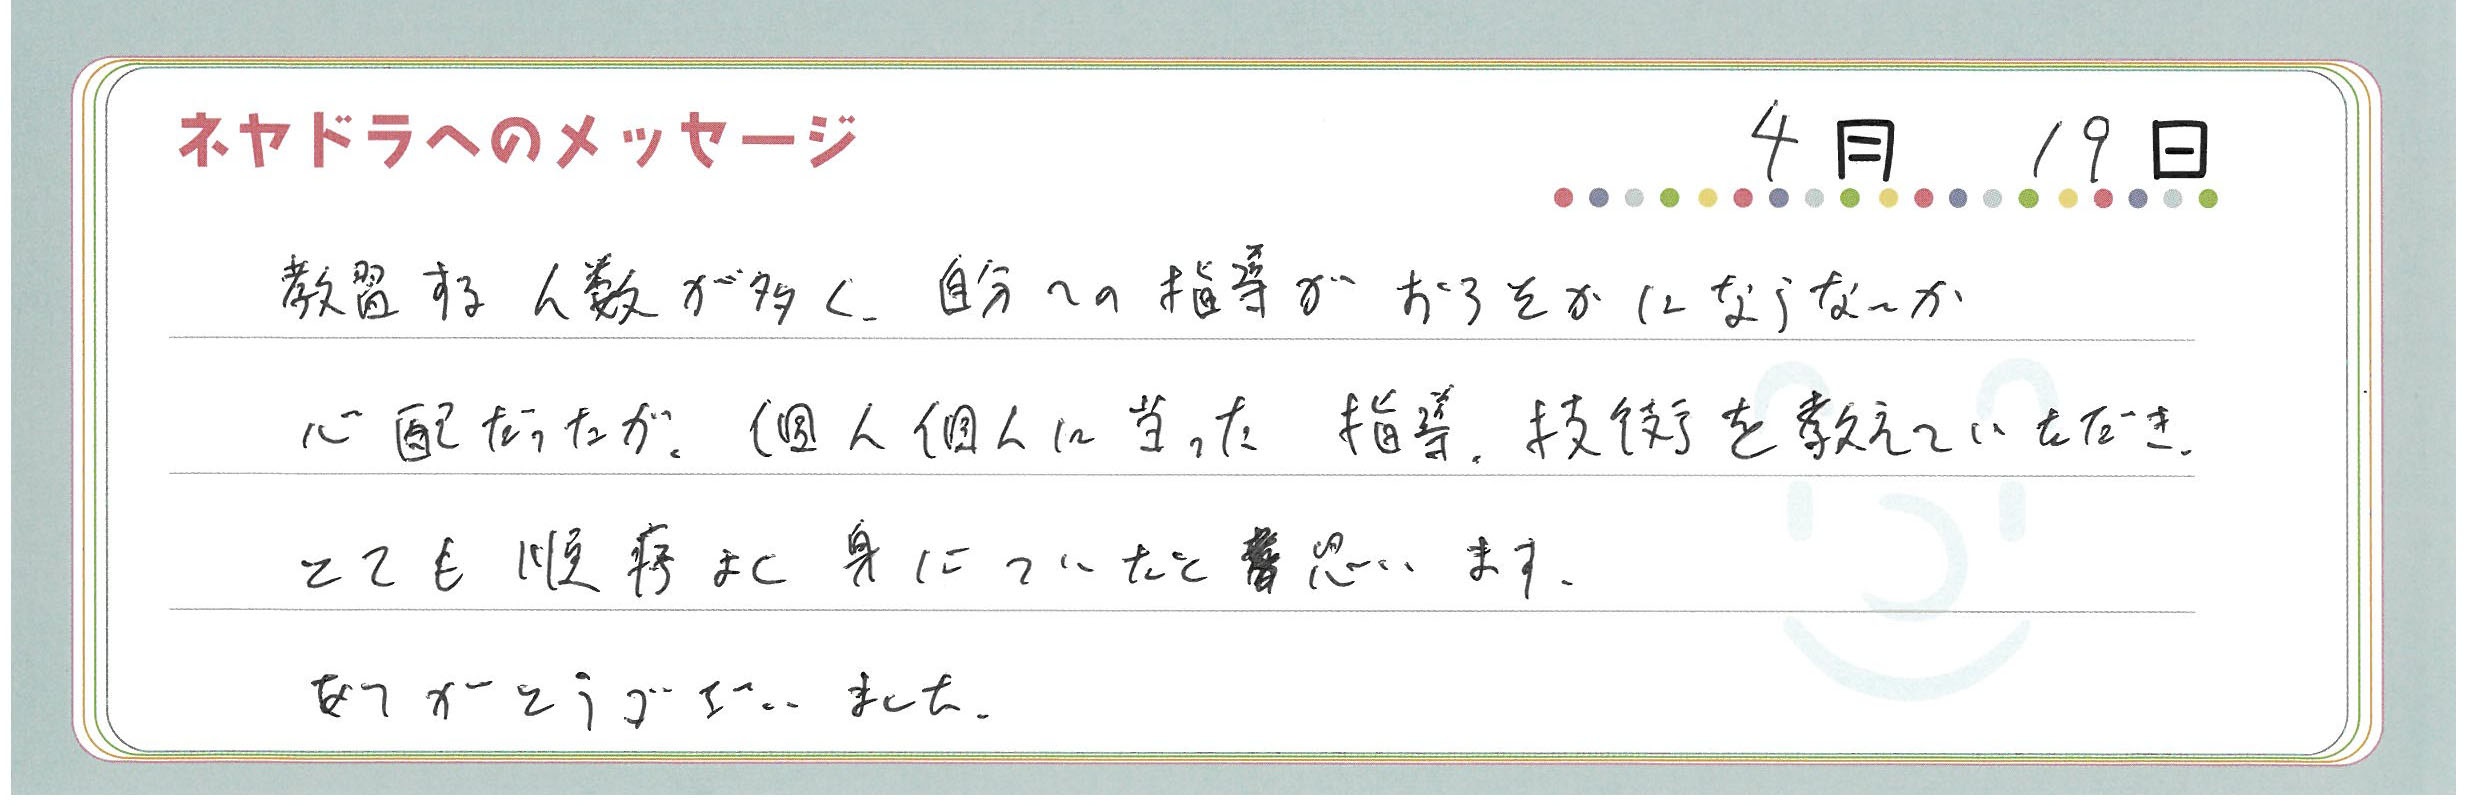 ネヤドラへのメッセージ
4月 19日
教習する人数が多く、自分への指導がおろそかにならないか
心配だったが、個人個人に当った 指導、技術を教えていただき、
とても順序よく身についたと思います。
ありがとうございました。